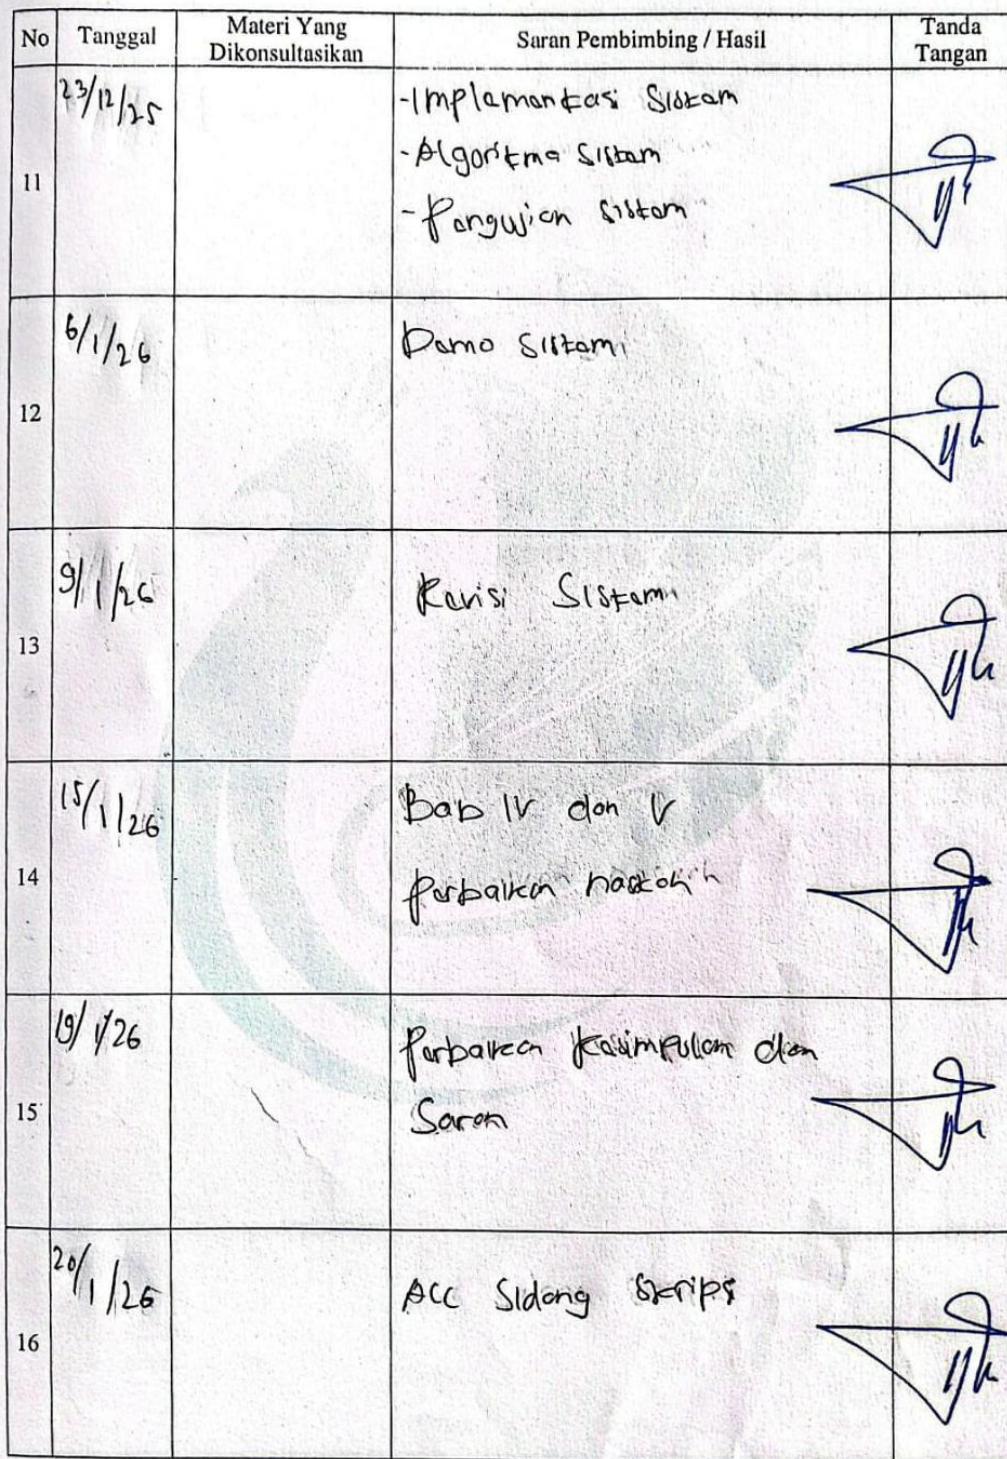 No Tanggal Materi Yang Dikonsultasikan Saran Pembimbing / Hasil Tanda Tangan
11 23/12/25 -Implementasi Sistem
-Algoritma Sistem
-Pengujian Sistem
12 6/1/26 Demo Sistem
13 9/1/26 Revisi Sistem
14 15/1/26 Bab IV dan V
Perbaikan naskah
15 19/1/26 Perbaikan Kesimpulan dan
Saran
16 20/1/26 ACC Sidang Skripsi